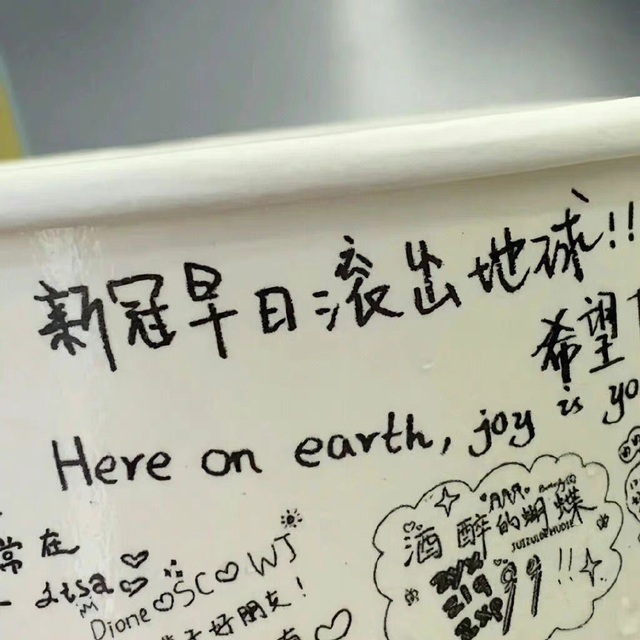 新冠早日滚出地球!!
希望
Here on earth, joy is yo
常在
Lisa♡
Dione♡SC♡WJ
好朋友!
酒醉的蝴蝶
99!!